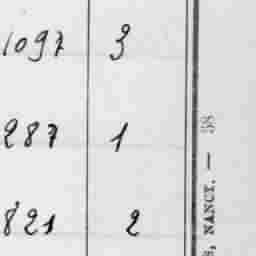 1097 3
287 1
821 2
, NANCY. — 58